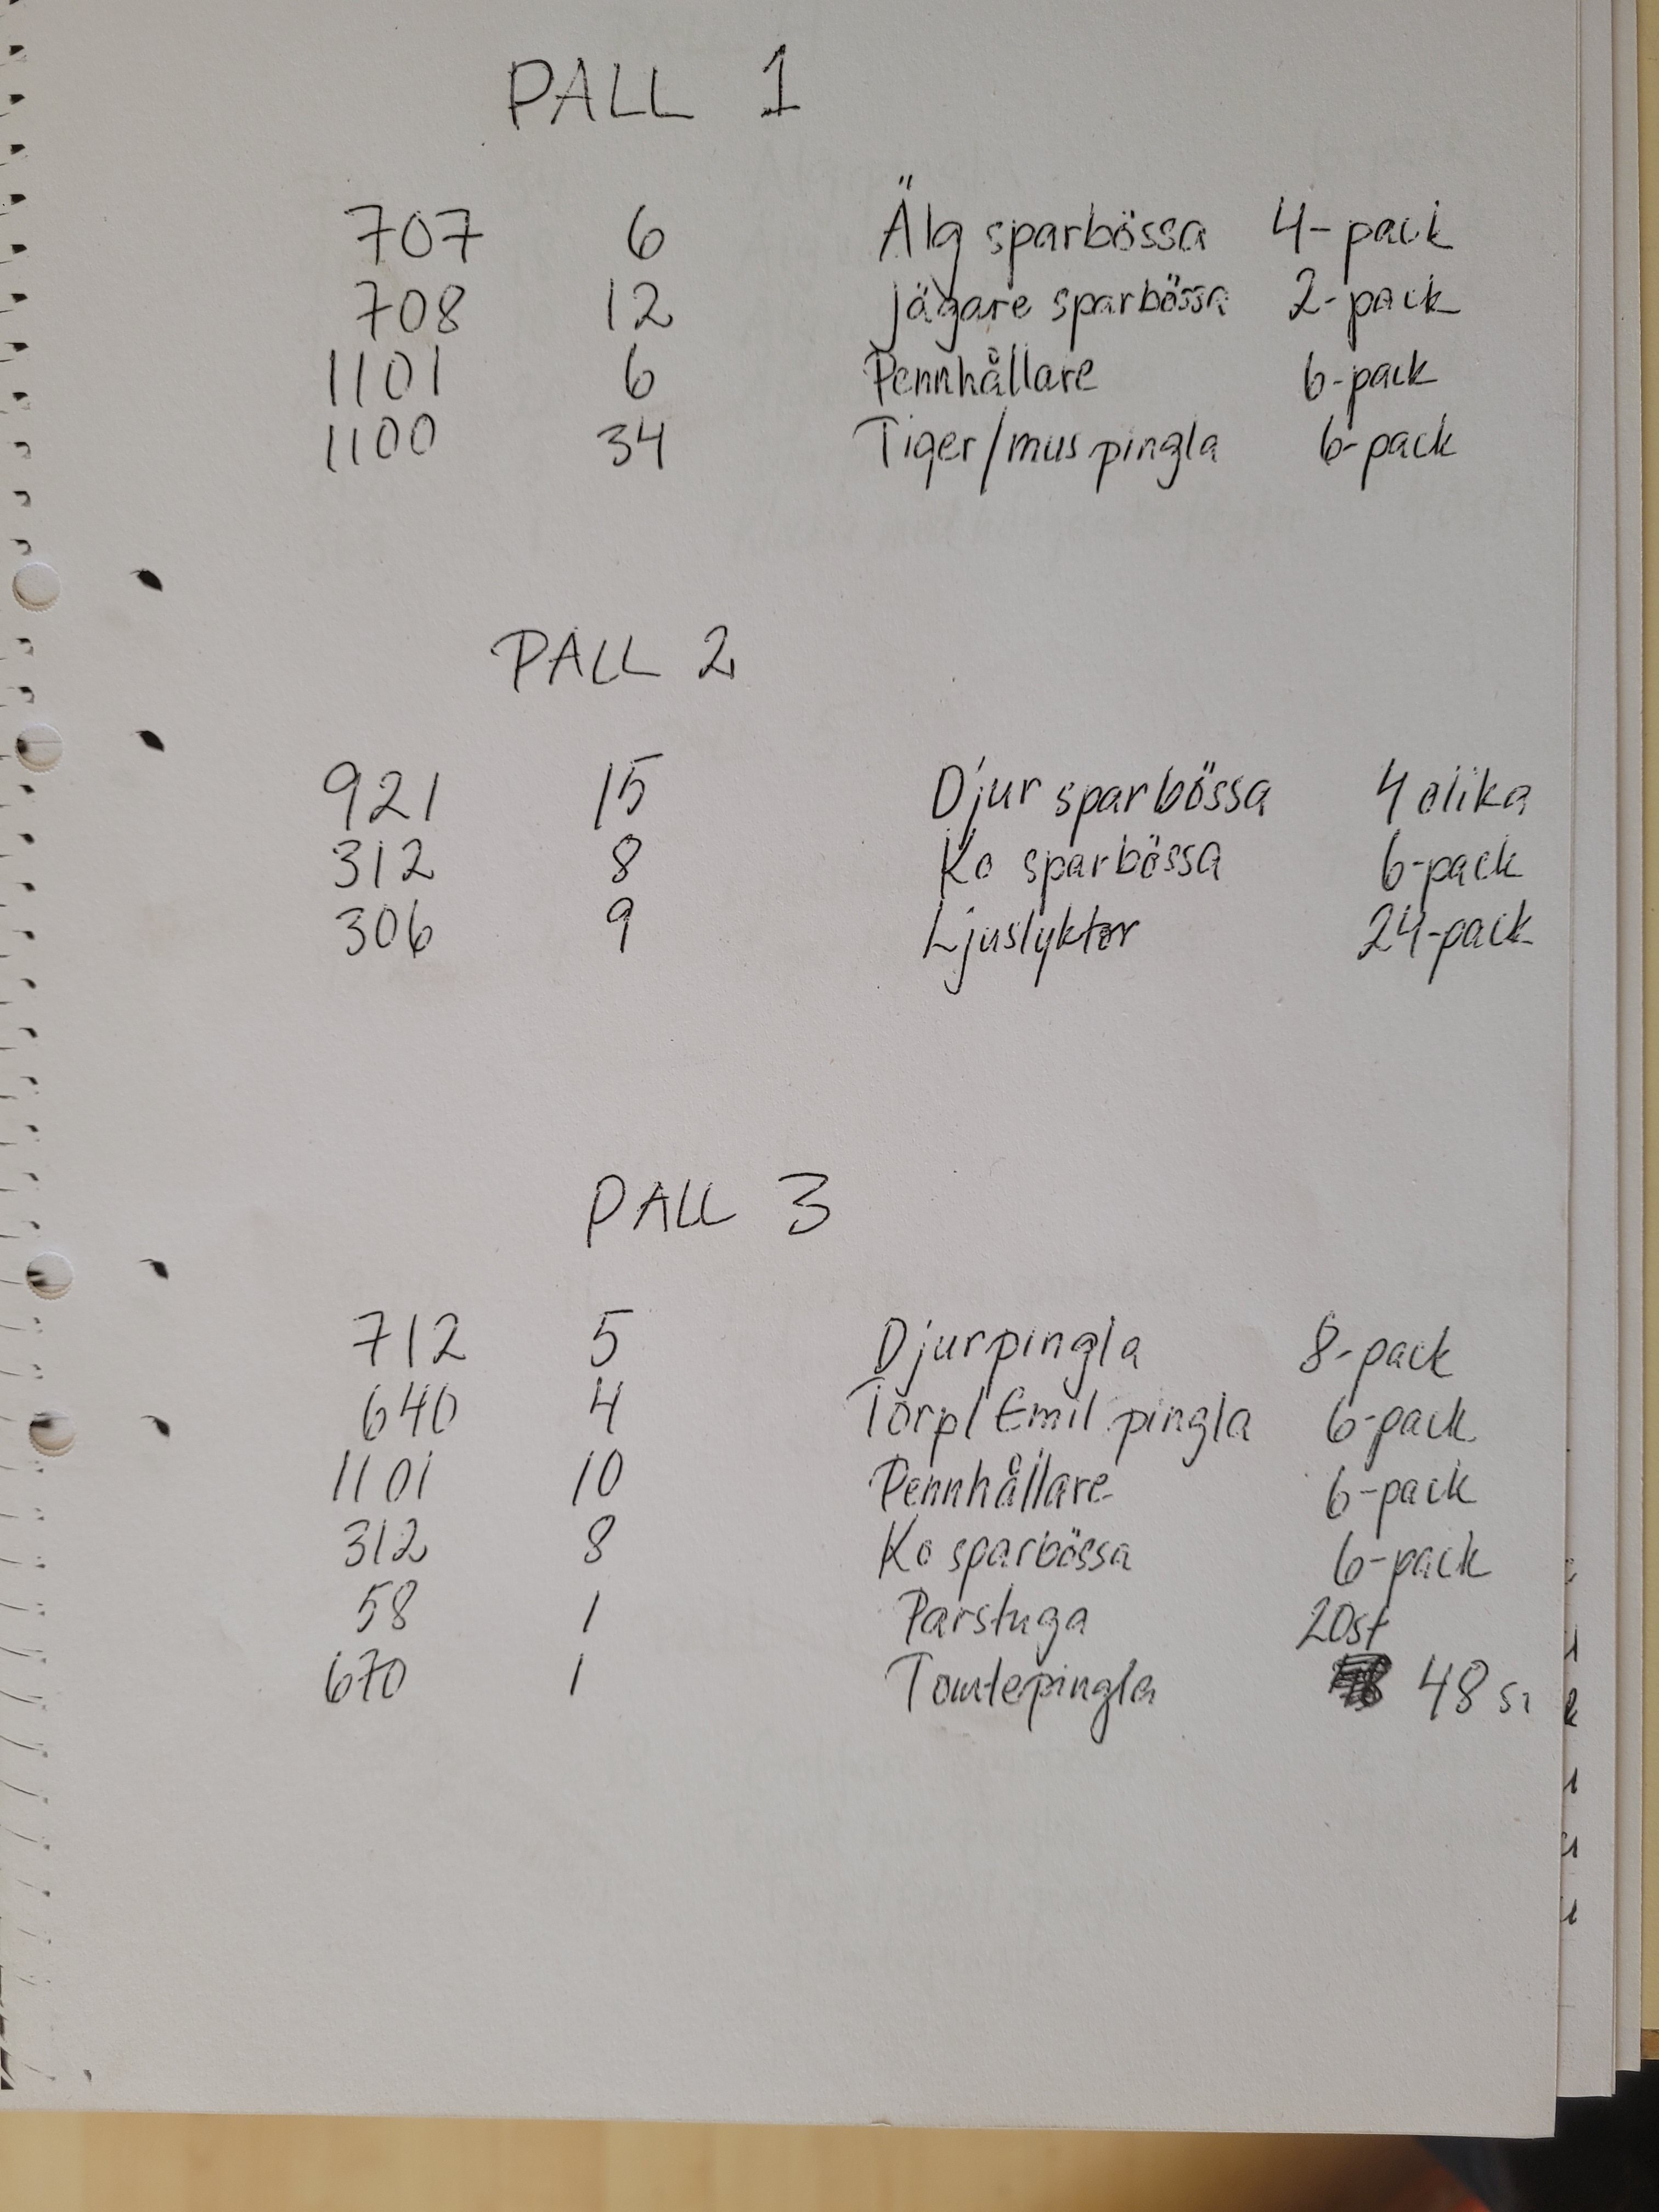 PALL 1
707 6 Älg sparbössa 4-pack
708 12 jägare sparbössa 2-pack
1101 6 Pennhållare 6-pack
1100 34 Tiger/mus pingla 6-pack
PALL 2
921 15 Djur sparbössa 4 olika
312 8 Ko sparbössa 6-pack
306 9 Ljuslyktor 24-pack
PALL 3
712 5 Djurpingla 8-pack
640 4 Torp/Emil pingla 6-pack
1101 10 Pennhållare 6-pack
312 8 Ko sparbössa 6-pack
58 1 Parstuga 20st
670 1 Tomtepingla 48